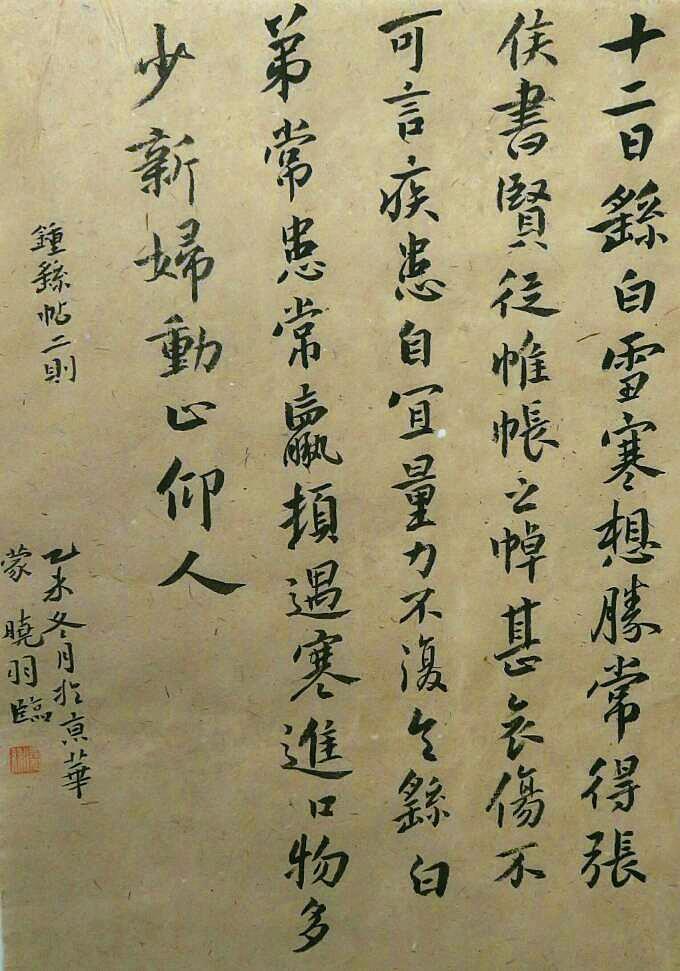 十二日繇白雪寒想勝常得張
侯書賢從帷帳之悼甚哀傷不
可言疾患自宜量力不復之繇白
弟常患常羸頓遇寒進口物多
少新婦動止仰人
鍾繇帖二則
乙未冬月於京華
蒙曉羽臨